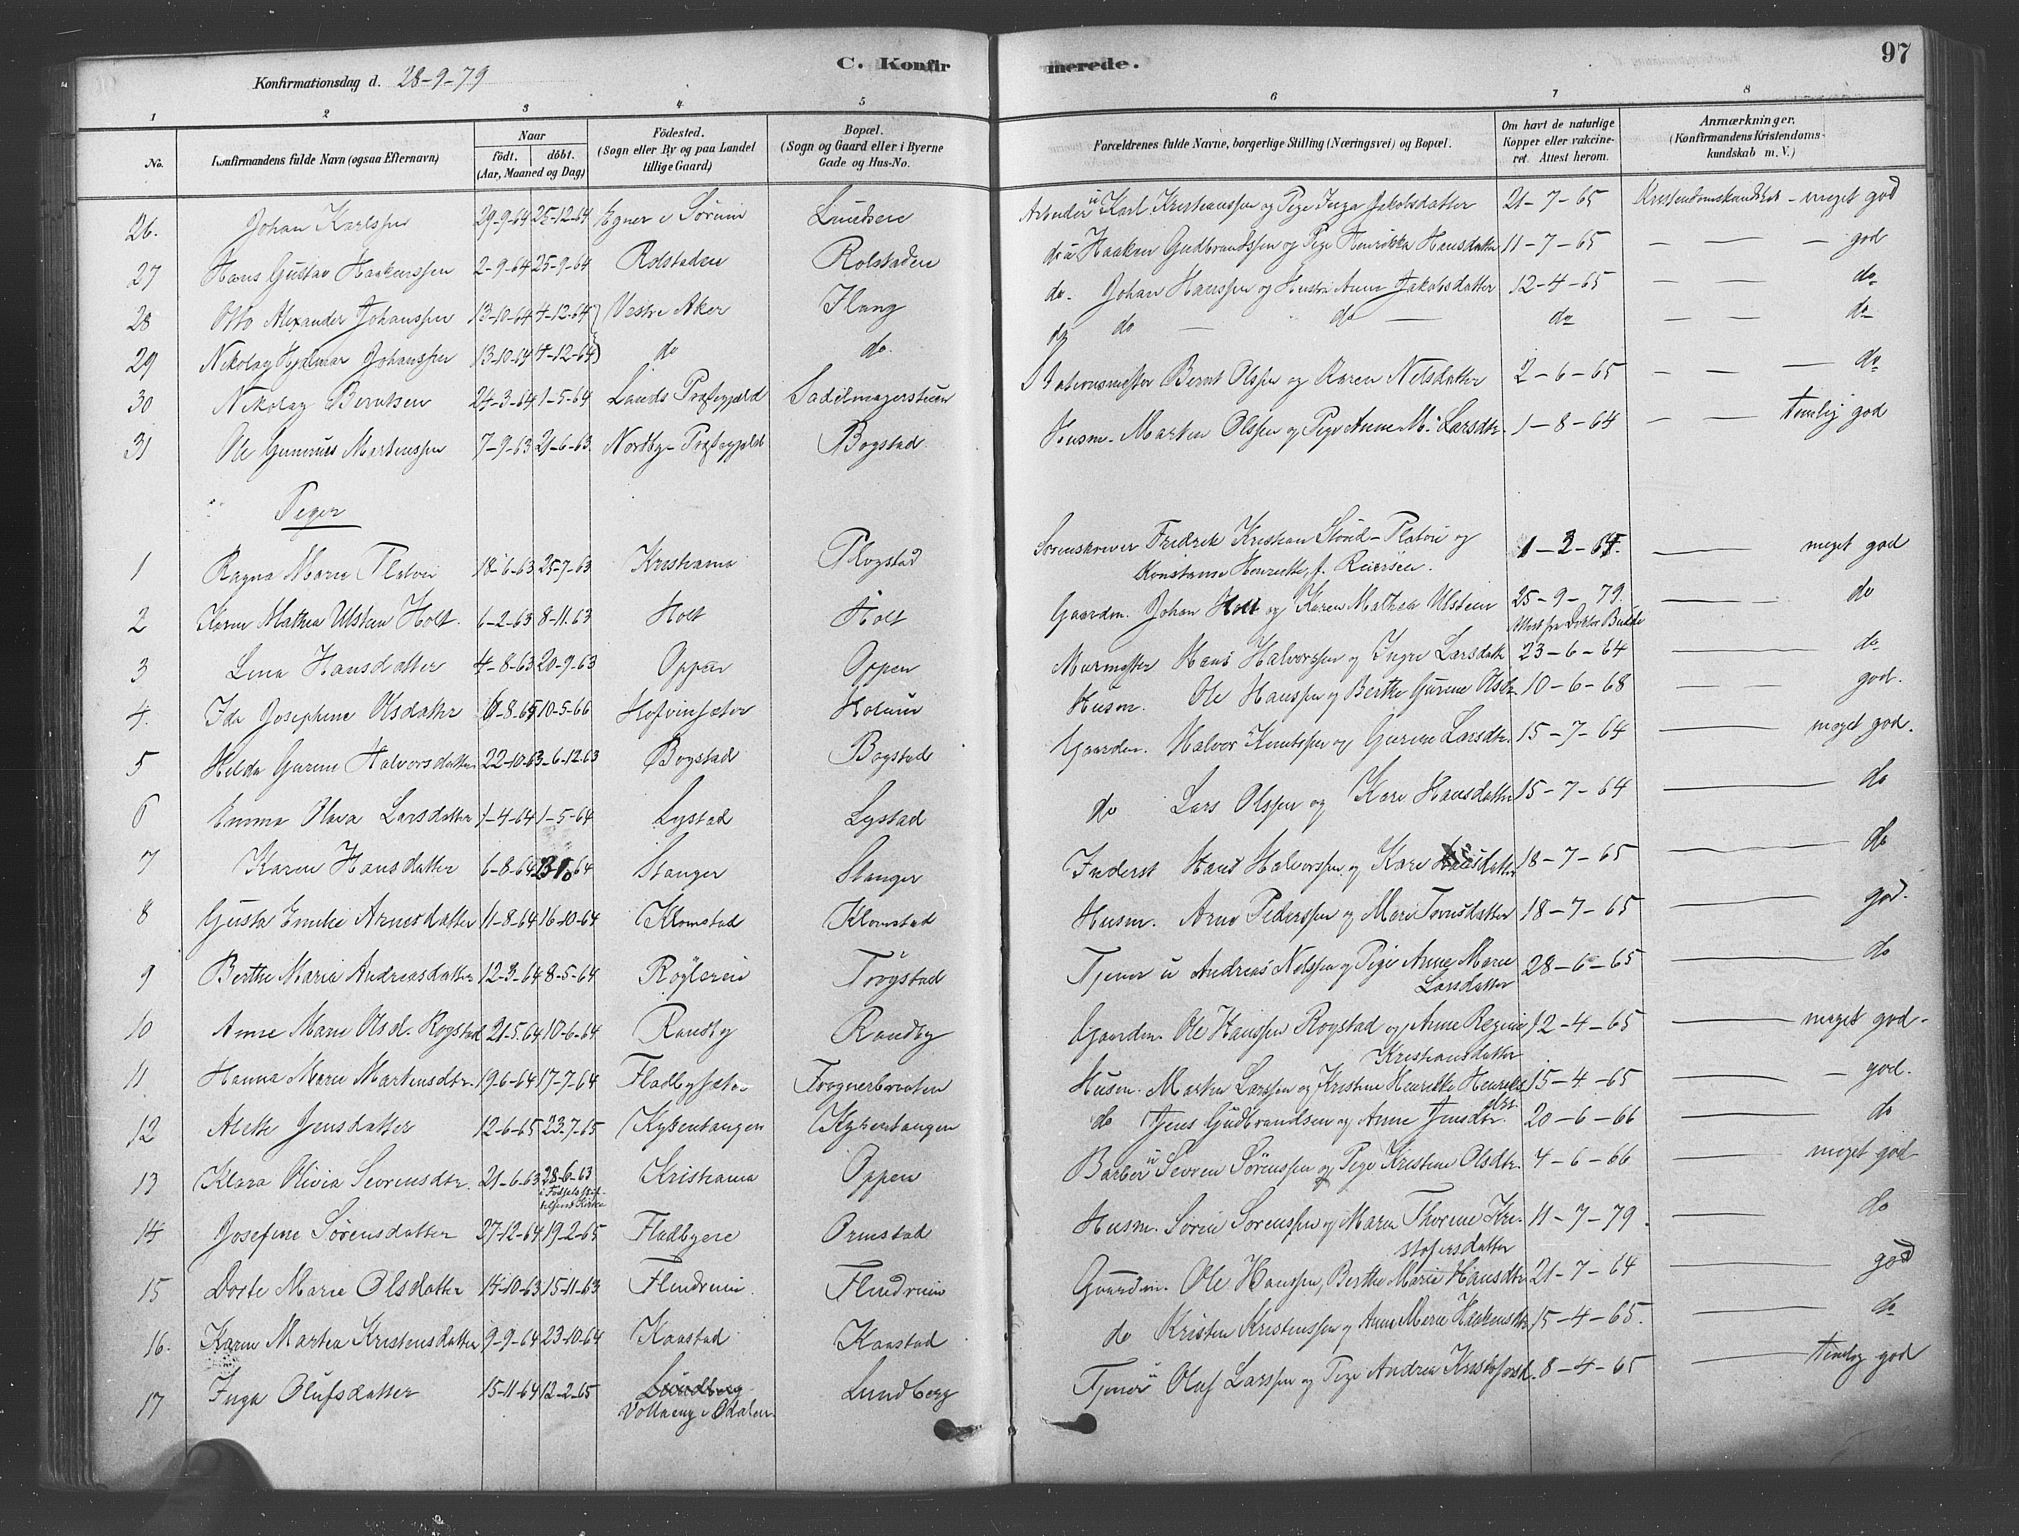 Konfirmationsdag d. 28-9-79
C. Konfirmerede.
97
1 2 3 4 5 6 7 8
No.
Konfirmandens fulde Navn (ogsaa Efternavn)
Naar
født. døbt.
(Aar, Maaned og Dag)
Fødested.
(Sogn eller By og paa Landet
tillige Gaard)
Bopæl.
(Sogn og Gaard eller i Byerne
Gade og Hus-No.
Forældrenes fulde Navne, borgerlige Stilling (Næringsvei) og Bopæl.
Om havt de naturlige
Kopper eller vakcine-
ret Attest herom.
Anmærkninger.
(Konfirmandens Kristendoms-
kundskab m. V.)
26. Johan Karlssen 29-9-64 25-12-64 Egner i Sørum Lundsen Arbeider u Karl Kristianssen og Pige Inga Jakobsdatter 21-7-65 Kristendomskundskab - meget god
27 Hans Gustav Haakenssen 2-9-64 25-9-64 Rolstadeie Rolstadeie do u Haaken Gudbrandssen og Pige Henrikka Hansdatter 11-7-65 — — — god
28 Otto Alexander Johanssen 13-10-64 4-12-64 Vestre Aker Ilang do. Johan Hanssen og Hustru Anne Jakobsdatter 12-4-65 — — do
29 Nikolay Hjalmar Johanssen 13-10-64 4-12-64 do do. do — do — do — — do
30 Nikolay Berntsen 24-3-64 1-5-64 Lands Præstegjæld Sadelmagerstuen Stationsmester Bernt Olssen og Karen Nelsdatter 2-6-65 — — — do
31 Ole Gunerius Martinssen 7-9-63 21-6-63. Nordby Præstegjeld Bogstad Husm. Martin Olssen og Pige Anne M. Larsdtr. 1-8-64 — — temlig god
Piger
1 Ragna Marie Platou 18-6-63 25-7-63 Kristiania Plogstad Sorenskriver Fredrik Kristian Stoud-Platou og 1-3-65. — meget god
Konstanse Henriette, f. Reiersen.
2 Karen Mathea Ulstein Holt. 6-2-63 8-11-63 Holt Holt Gaardm. Johan Holt og Karen Mathea Ulstein 25-9-79. — do
Attest fra Doktor Budde
3 Lina Hansdatter 4-8-63 20-9-63 Oppen Oppen Murmester Hans Halvorssen og Ingre Larsdatter 23-6-64 — do
4. Ida Josephine Olsdatter 6-8-65 10-5-66 Hofvinsæter Holum Husm. Ole Hanssen og Berthe Gurine Olsdtr 10-6-68 — god.
5 Helda Gurine Halvorsdatter 22-10-63 6-12-63 Bogstad Bogstad Gaardm. Halvor Knutssen og Gurine Larsdtr. 15-7-64 — meget god.
6 Emma Olava Larsdatter 1-4-64 1-5-64 Lystad Lystad do Lars Olssen og Kari Hansdatter 15-7-64 — do
7 Karen Hansdatter 6-8-64 64 Stanger Stanger Inderst Hans Halvorssen og Kari 18-7-65 — do
8 Gusta Emilie Arnesdatter 11-8-64 16-10-64 Klomstad Klomstad Husm. Arne Pederssen og Mari 18-7-65 — god.
9 Berthe Marie Andreasdatter 12-3-64 8-5-64 Røglereie Trøgstad Tjener u Andreas Nelssen og Pige Anne Marie 28-6-65 — do
Larsdatter
10 Anne Marie Olsd. Rogstad 21-5-64 10-6-64 Randby Randby Gaardm. Ole Hanssen Rogstad og Anne Regine 12-4-65 — meget god-
Kristiansdatter
11 Hanna Marie Martinsdtr. 19-6-64 17-7-64 Fladbysæter Frognerbraaten Husm. Martin Larssen og Kristine Henrikke Henriks 15-4-65 — god.
dtr.
12 Alette Jensdatter 12-6-65 23-7-65 Kykentangen Kykentangen do Jens Gudbrandsen og Anne Jensdtr. 20-6-66 — do
13 Klara Olivia Severensdtr. 21-6-63 28-6-63 Kristiania Oppen Barber u Severen Sørenssen og Pige Kristine Olsdtr. 4-6-66 — meget god-
i Fødselsstif-
telsens Kirke
14 Josefine Sørensdatter 27-12-64 19-2-65 Fladbyeie Ornstad Husm. Søren Sørenssen og Maren Thorine Kri- 11-7-79. — do
stofersdatter
15 Dorte Marie Olsdatter 14-10-63 15-11-63 Flindreim Flindreim Gaardm. Ole Hanssen, Berthe Marie Hansdtr 21-7-64 — god
16. Karen Martea Kristensdatter 9-9-64 23-10-64 Kaastad Kaastad do Kristen Kristenssen og Anne Marie Haakensdtr 15-4-65. — do
17 Inga Olufsdatter 15-11-64 12-2-65 Lundberg Lundberg Tjener u Oluf Larssen og Pige Andrea Kristofersd. 8-4-65 — temlig god
Vollaug i Odalen